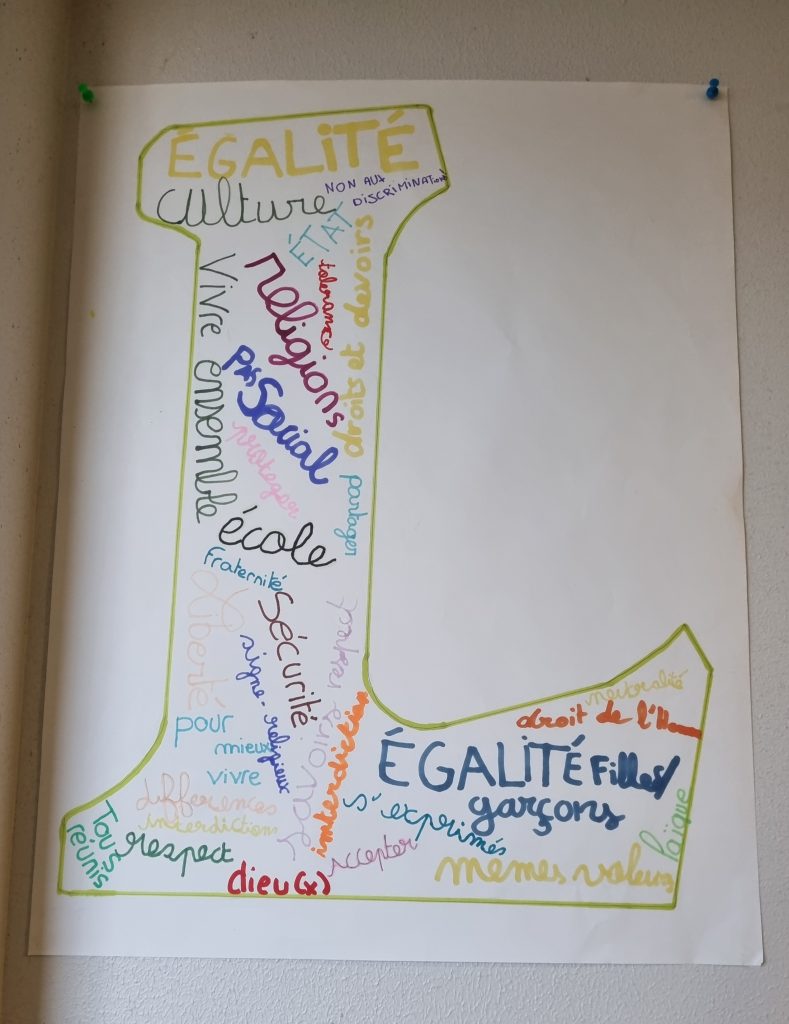 ÉGALiTÉ
culture
NON AUX
DISCRIMINATIONS
ÉTAT
tolerance
droits et devoirs
Vivre ensemble
religions
pas
Social
proteger
partager
école
fraternité
Liberté
sécurité
signe-religieux
respect
savoirs
interdiction
pour
mieux
vivre
différences
interdiction
Tous
réunis
respect
dieu(x)
accepter
neutralité
droit de l'Homme
ÉGALiTÉ Filles/
garçons
s'exprimés
laïque
memes valeurs